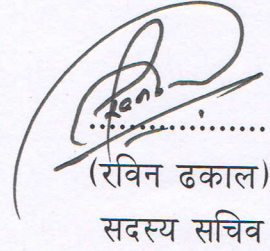 (रविन ढकाल)
सदस्य सचिव